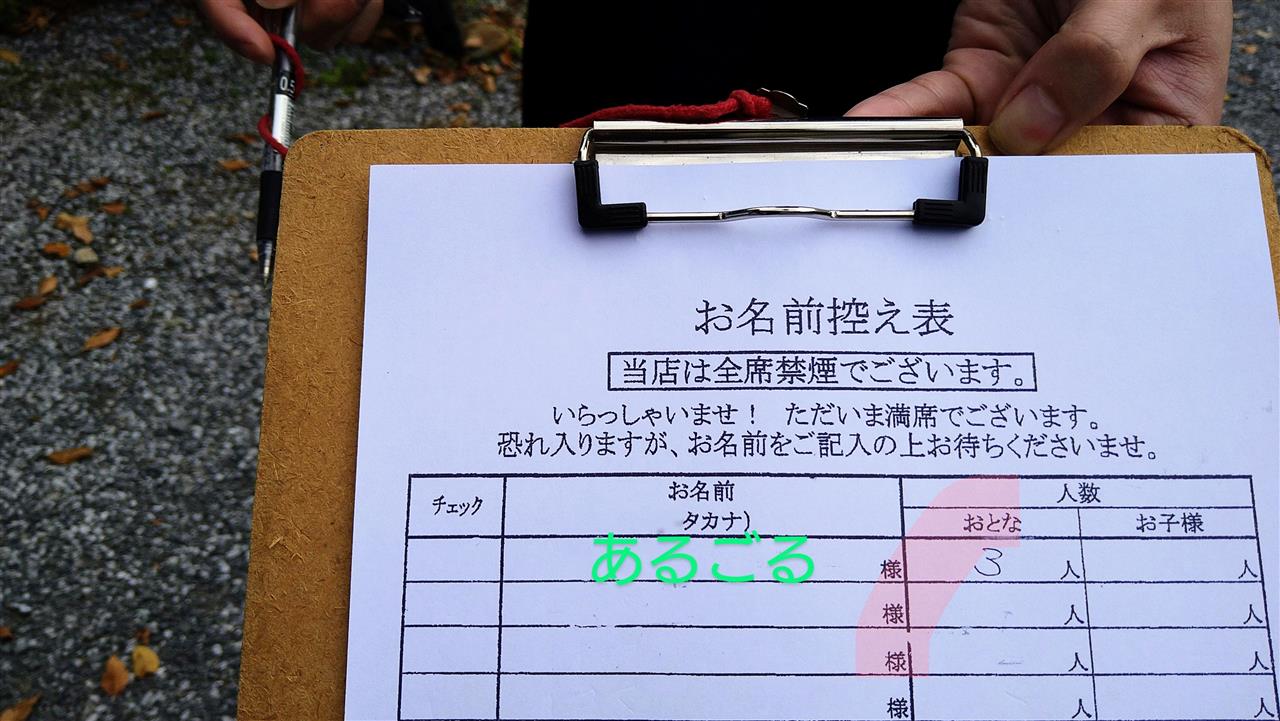 0.5
お名前控え表
当店は全席禁煙でございます。
いらっしゃいませ！ ただいま満席でございます。
恐れ入りますが、お名前をご記入の上お待ちくださいませ。
チェック お名前 人数
タカナ) おとな お子様
あるごる 様 3 人 人
様 人 人
様 人 人
様 人 人